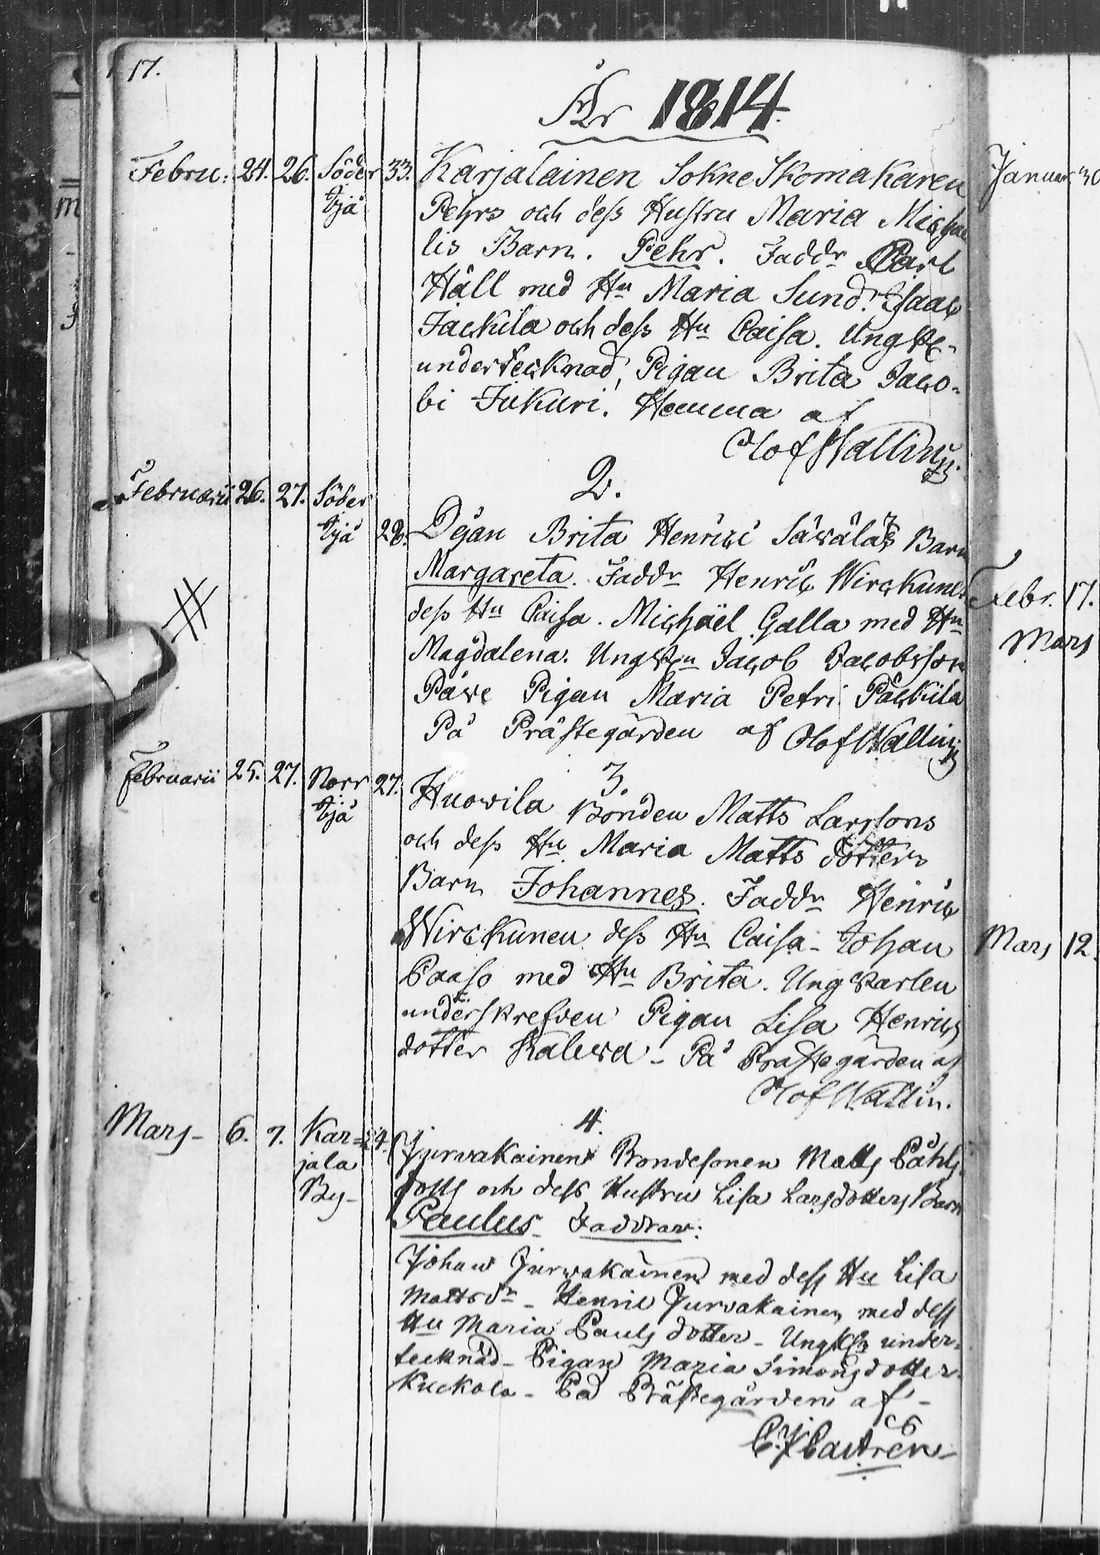 17.
År 1814
Febru: 24. 26. Söder 33. Karjalainen Sokne Skomakaren
Pehrs och dess Hustru Maria Micha
lis Barn. Pehr. Faddr Carl
Häll med Hu Maria Sund. Isaac
Jackila och dess Hu Caisa. Ung
undertecknad, Pigan Brita Jaco-
bi Jukuri. Hemma af
Olof Wallin
2.
Februarii 26. 27. Söder
28. Pigan Brita Henrici Barn
Margareta. Faddr Henric Wirckunen
dess Hu Caisa. Michaël Galla med Hu
Magdalena. Ung Jacob Jacobsson
Pigan Maria Petri Päckilä
På Prästegården af Olof Wallin
3.
Februarii 25. 27. Norr 27. Huovila Bonden Matts Larssons
och dess Hu Maria Matts dotters
Barn Johannes. Faddr Henric
Wirckunen dess Hu Caisa - Johan
Paaso med Hu Brita. Ung Karlen
underskrefven Pigan Lisa Henrics
dotter - På Prästegården af
Olof Wallin.
4.
Mars - 6. 7. Kar= Jurvakainen Bondesonen Matts Påhls
jala
By-
och dess Hustru Lisa Larsdotters Barn
Paulus Faddrar:
Johan Jurvakainen med dess Hu Lisa
Mattsdr - Henric Jurvakainen med dess
Hu Maria Pauls dotter - Ung under-
tecknad - Pigan Maria Simonsdotter
Kuckola - På Prästegården af -
Castrén -
Januar 30
Febr. 17.
Mars
Mars 12.